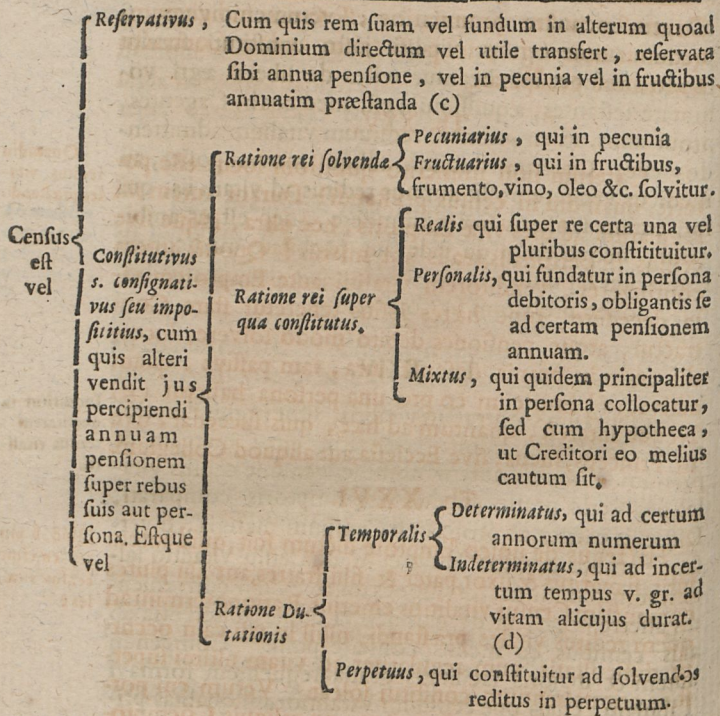 Reſervativus, Cum quis rem ſuam vel fundum in alterum quoad
Dominium directum vel utile transfert, reſervata
ſibi annua penſione, vel in pecunia vel in fructibus
annuatim præſtanda (c)
Cenſus
eſt
vel
Conſtitutivus
s. conſignati-
vus ſeu impo-
ſititius, cum
quis alteri
vendit jus
percipiendi
annuam
penſionem
ſuper rebus
ſuis aut per-
ſona. Eſtque
vel
Ratione rei ſolvendæ
Pecuniarius, qui in pecunia
Fructuarius, qui in fructibus,
frumento, vino, oleo &c. ſolvitur.
Ratione rei ſuper
qua conſtitutus.
Realis qui ſuper re certa una vel
pluribus conſtitituitur.
Perſonalis, qui fundatur in perſona
debitoris, obligantis ſe
ad certam penſionem
annuam.
Mixtus, qui quidem principaliter
in perſona collocatur,
ſed cum hypotheca,
ut Creditori eo melius
cautum ſit.
Ratione Du-
rationis
Temporalis
Determinatus, qui ad certum
annorum numerum
Indeterminatus, qui ad incer-
tum tempus v. gr. ad
vitam alicujus durat.
(d)
Perpetuus, qui conſtituitur ad ſolvendos
reditus in perpetuum.